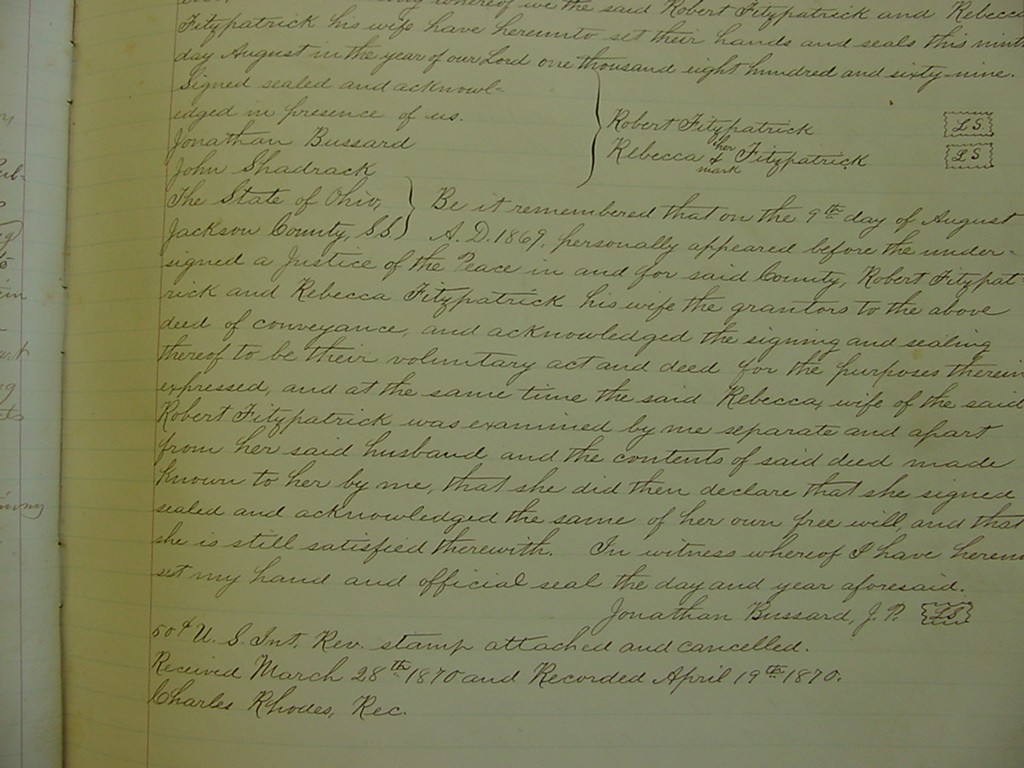 whereof we the said Robert Fitzpatrick and Rebecca
Fitzpatrick his wife have hereunto set their hands and seals this ninth
day August in the year of our Lord one thousand eight hundred and sixty-nine.
Signed sealed and acknowl-
edged in presence of us.
Jonathan Bussard
John Shadrack
Robert Fitzpatrick L S
her
Rebecca x Fitzpatrick L S
mark
The State of Ohio,
Jackson County, SS
Be it remembered that on the 9th day of August
A. D. 1869, personally appeared before the under-
signed a Justice of the Peace in and for said County, Robert Fitzpat-
rick and Rebecca Fitzpatrick his wife the grantors to the above
deed of conveyance, and acknowledged the signing and sealing
thereof to be their voluntary act and deed for the purposes therein
expressed, and at the same time the said Rebecca, wife of the said
Robert Fitzpatrick was examined by me separate and apart
from her said husband and the contents of said deed made
known to her by me, that she did then declare that she signed
sealed and acknowledged the same of her own free will and that
she is still satisfied therewith. In witness whereof I have hereun
set my hand and official seal the day and year aforesaid.
Jonathan Bussard, J. P. L S
50¢ U. S. Int. Rev. stamp attached and cancelled.
Received March 28th 1870 and Recorded April 19th 1870.
Charles Rhodes, Rec.